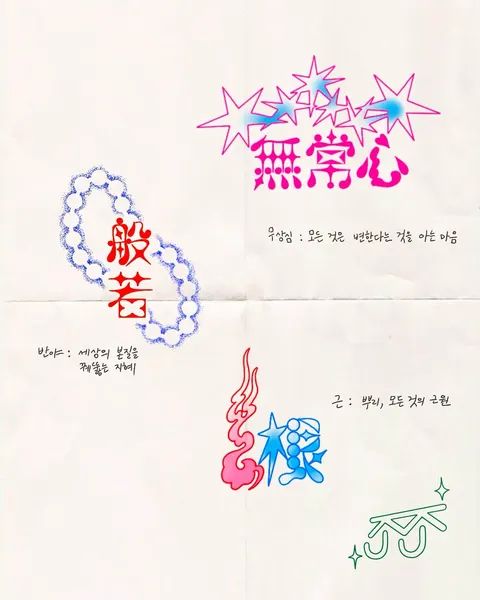 無常心
무상심 : 모든 것은 변한다는 것을 아는 마음
般若
반야 : 세상의 본질을
꿰뚫는 지혜
根
근 : 뿌리, 모든 것의 근원